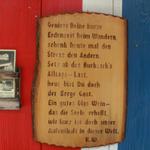 Genieße Deine kurze
Erdenzeit beim Wandern,
schenk heute mal den
Stress den Andern.
Setz ab den Rucksack's
Alltags-Last,
heut bist Du doch
der Sorge Gast.
Ein gutes Glas Wein-
das die Seele erhellt,
wie kurz ist doch unser
Aufenthalt in dieser Welt.